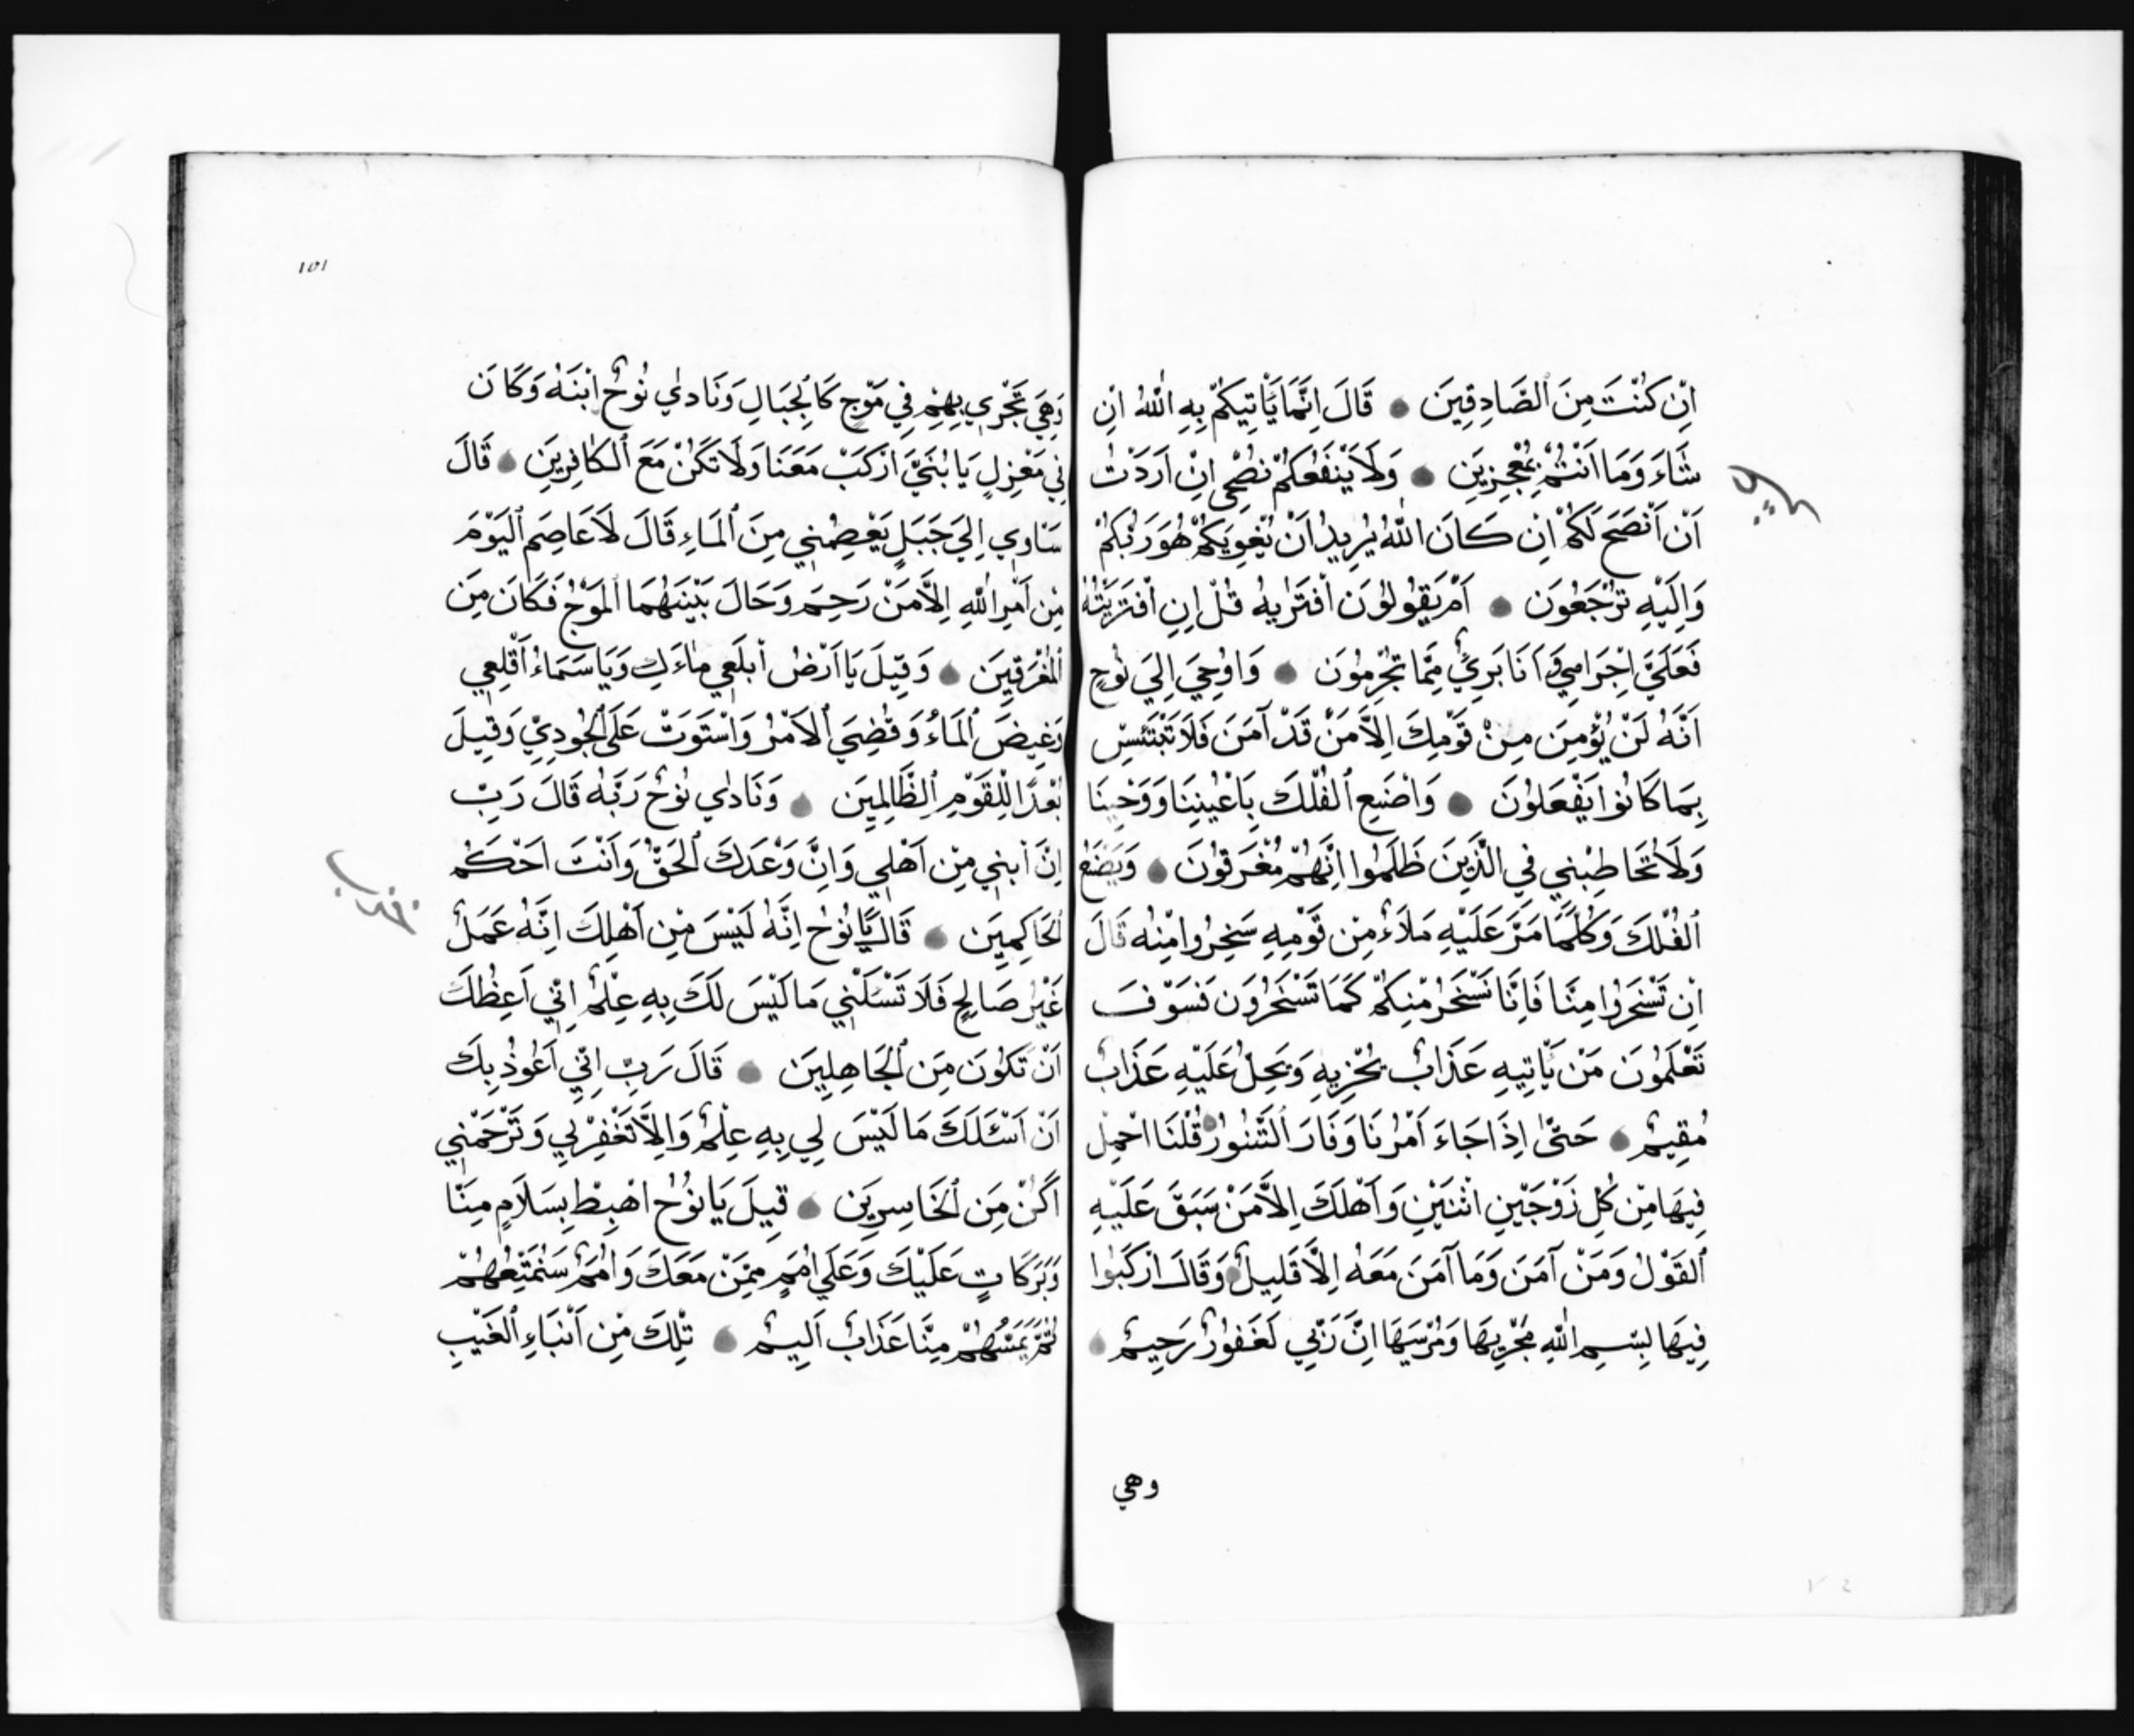 اِنْ كُنْتَ مِنَ الصَّادِقِينَ ۝ قَالَ اِنَّمَا يَأْتِيكُمْ بِهِ اللّٰهُ اِنْ
شَاءَ وَمَا اَنْتُمْ بِمُعْجِزِينَ ۝ وَلَا يَنْفَعُكُمْ نُصْحِي اِنْ اَرَدْتُ
اَنْ اَنْصَحَ لَكُمْ اِنْ كَانَ اللّٰهُ يُرِيدُ اَنْ يُغْوِيَكُمْ هُوَ رَبُّكُمْ
وَاِلَيْهِ تُرْجَعُونَ ۝ اَمْ يَقُولُونَ افْتَرٰيهُ قُلْ اِنِ افْتَرَيْتُهُ
فَعَلَيَّ اِجْرَامِي وَاَنَا بَرِيءٌ مِمَّا تُجْرِمُونَ ۝ وَاُوحِيَ اِلَي نُوحٍ
اَنَّهُ لَنْ يُؤْمِنَ مِنْ قَوْمِكَ اِلَّا مَنْ قَدْ آمَنَ فَلَا تَبْتَئِسْ
بِمَا كَانُوا يَفْعَلُونَ ۝ وَاصْنَعِ الْفُلْكَ بِاَعْيُنِنَا وَوَحْيِنَا
وَلَا تُخَاطِبْنِي فِي الَّذِينَ ظَلَمُوا اِنَّهُمْ مُغْرَقُونَ ۝ وَيَصْنَعُ
الْفُلْكَ وَكُلَّمَا مَرَّ عَلَيْهِ مَلَاءٌ مِنْ قَوْمِهِ سَخِرُوا مِنْهُ قَالَ
اِنْ تَسْخَرُوا مِنَّا فَاِنَّا نَسْخَرُ مِنْكُمْ كَمَا تَسْخَرُونَ فَسَوْفَ
تَعْلَمُونَ مَنْ يَأْتِيهِ عَذَابٌ يُخْزِيهِ وَيَحِلُّ عَلَيْهِ عَذَابٌ
مُقِيمٌ ۝ حَتّٰى اِذَا جَاءَ اَمْرُنَا وَفَارَ التَّنُّورُ قُلْنَا احْمِلْ
فِيهَا مِنْ كُلٍّ زَوْجَيْنِ اثْنَيْنِ وَاَهْلَكَ اِلَّا مَنْ سَبَقَ عَلَيْهِ
الْقَوْلُ وَمَنْ آمَنَ وَمَا آمَنَ مَعَهُ اِلَّا قَلِيلٌ ۝ وَقَالَ ارْكَبُوا
فِيهَا بِسْمِ اللّٰهِ مَجْرٰيهَا وَمُرْسٰيهَا اِنَّ رَبِّي لَغَفُورٌ رَحِيمٌ ۝
وهي
١٥١
وَهِيَ تَجْرِي بِهِمْ فِي مَوْجٍ كَالْجِبَالِ وَنَادٰي نُوحٌ ابْنَهُ وَكَانَ
فِي مَعْزِلٍ يَا بُنَيَّ ارْكَبْ مَعَنَا وَلَا تَكُنْ مَعَ الْكَافِرِينَ ۝ قَالَ
سَآوِي اِلَي جَبَلٍ يَعْصِمُنِي مِنَ الْمَاءِ قَالَ لَا عَاصِمَ الْيَوْمَ
مِنْ اَمْرِ اللّٰهِ اِلَّا مَنْ رَحِمَ وَحَالَ بَيْنَهُمَا الْمَوْجُ فَكَانَ مِنَ
الْمُغْرَقِينَ ۝ وَقِيلَ يَا اَرْضُ ابْلَعِي مَاءَكِ وَيَا سَمَاءُ اَقْلِعِي
وَغِيضَ الْمَاءُ وَقُضِيَ الْاَمْرُ وَاسْتَوَتْ عَلَى الْجُودِيِّ وَقِيلَ
بُعْدًا لِلْقَوْمِ الظَّالِمِينَ ۝ وَنَادٰي نُوحٌ رَبَّهُ قَالَ رَبِّ
اِنَّ ابْنِي مِنْ اَهْلِي وَاِنَّ وَعْدَكَ الْحَقُّ وَاَنْتَ اَحْكَمُ
الْحَاكِمِينَ ۝ قَالَ يَا نُوحُ اِنَّهُ لَيْسَ مِنْ اَهْلِكَ اِنَّهُ عَمَلٌ
غَيْرُ صَالِحٍ فَلَا تَسْئَلْنِي مَا لَيْسَ لَكَ بِهِ عِلْمٌ اِنِّي اَعِظُكَ
اَنْ تَكُونَ مِنَ الْجَاهِلِينَ ۝ قَالَ رَبِّ اِنِّي اَعُوذُ بِكَ
اَنْ اَسْئَلَكَ مَا لَيْسَ لِي بِهِ عِلْمٌ وَاِلَّا تَغْفِرْ لِي وَتَرْحَمْنِي
اَكُنْ مِنَ الْخَاسِرِينَ ۝ قِيلَ يَا نُوحُ اهْبِطْ بِسَلَامٍ مِنَّا
وَبَرَكَاتٍ عَلَيْكَ وَعَلَي اُمَمٍ مِمَّنْ مَعَكَ وَاُمَمٌ سَنُمَتِّعُهُمْ
ثُمَّ يَمَسُّهُمْ مِنَّا عَذَابٌ اَلِيمٌ ۝ تِلْكَ مِنْ اَنْبَاءِ الْغَيْبِ